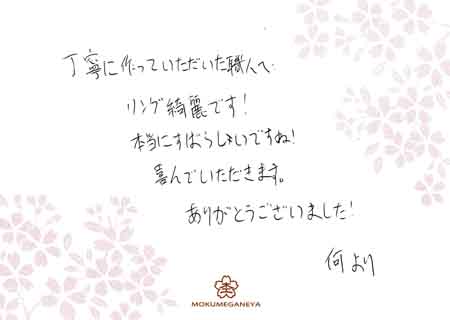 丁寧に作っていただいた職人へ
リング綺麗です!
本当にすばらしいですね!
喜んでいただきます。
ありがとうございました!
何より
MOKUMEGANEYA